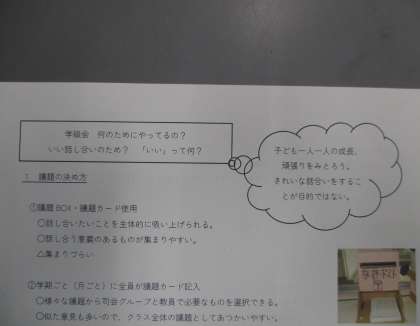 学級会　何のためにやってるの？
いい話し合いのため？　「いい」って何？
子ども一人一人の成長、
頑張りをみとろう。
きれいな話合いをするこ
とが目的ではない。
1　議題の決め方
①議題BOX・議題カード使用
○話し合いたいことを主体的に吸い上げられる。
○話し合う意義のあるものが集まりやすい。
△集まりづらい
②学期ごと（月ごと）に全員が議題カード記入
○様々な議題から司会グループと教員で必要なものを選択できる。
○似た意見も多いので、クラス全体の議題としてあつかいやすい。